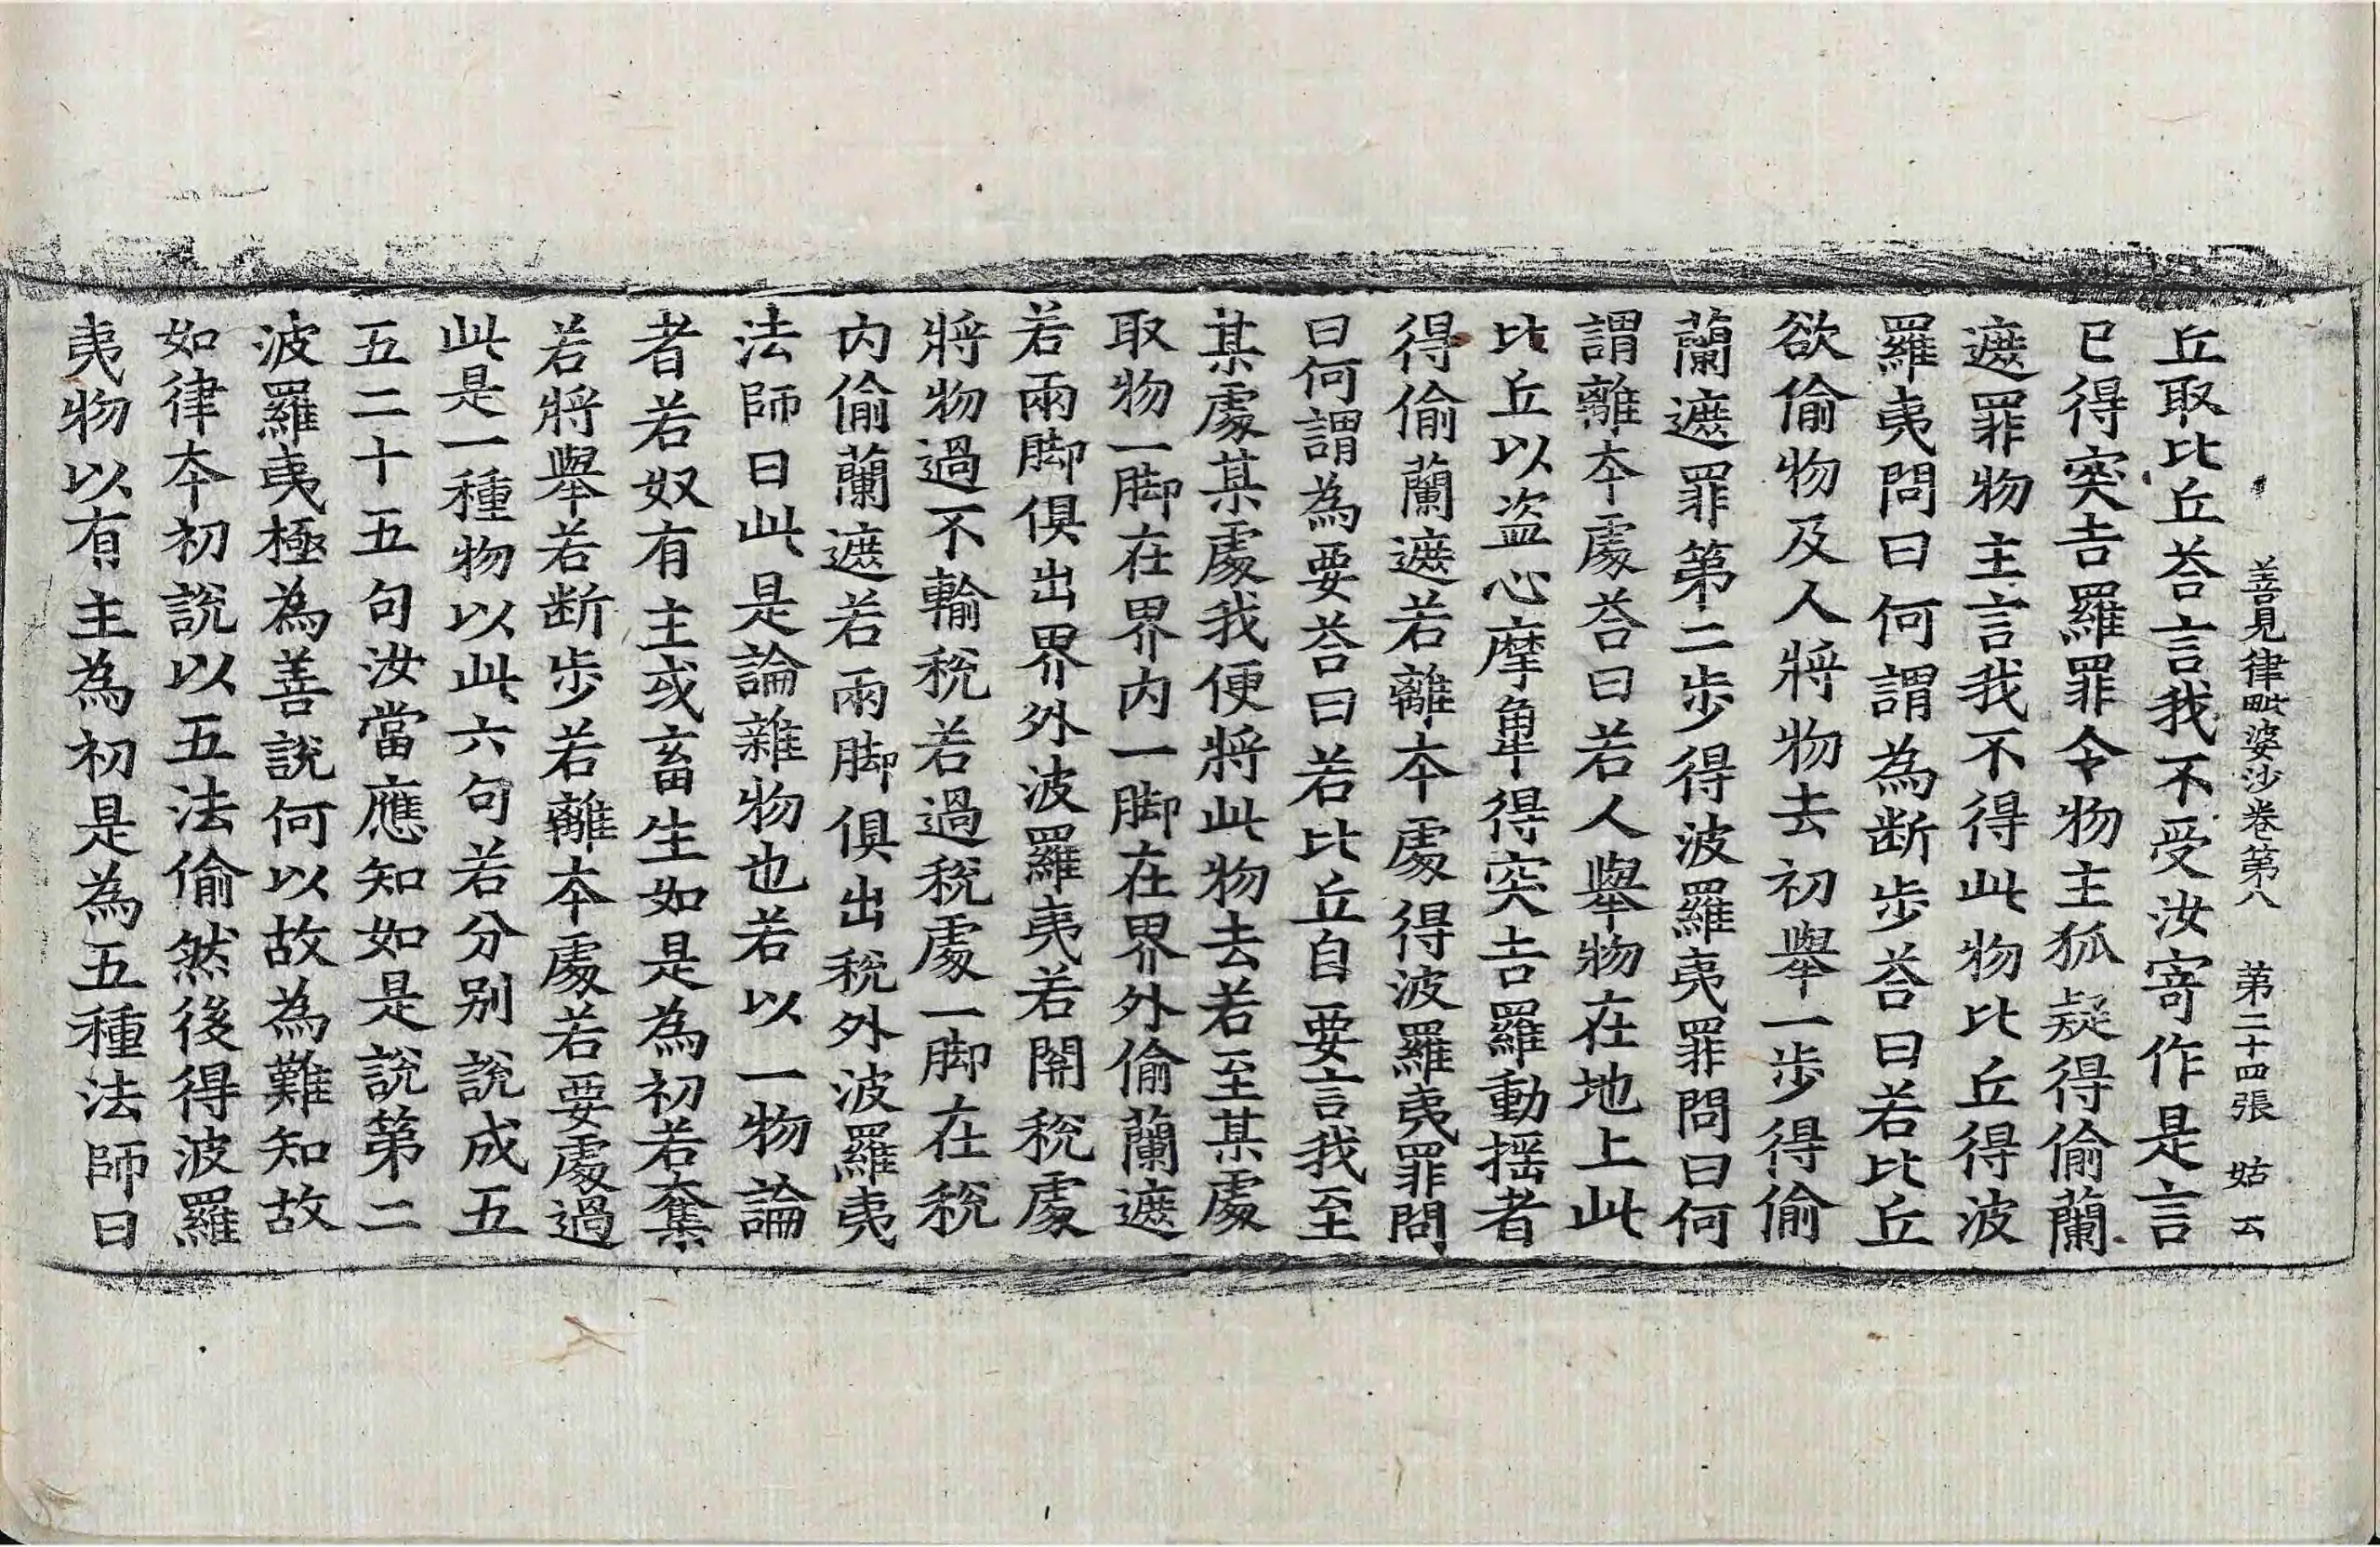 善見律毗婆沙卷第八　第二十四張　姑云
丘取比丘荅言我不受汝寄作是言
已得突吉羅罪令物主狐疑得偷蘭
遮罪物主言我不得此物比丘得波
羅夷問曰何謂為断步荅曰若比丘
欲偷物及人將物去初舉一步得偷
蘭遮罪第二步得波羅夷罪問曰何
謂離本處荅曰若人舉物在地上此
比丘以盗心摩𢱍得突吉羅動揺者
得偷蘭遮若離本處得波羅夷罪問
曰何謂為要荅曰若比丘自要言我至
某處某處我便將此物去若至某處
取物一脚在界内一脚在界外偷蘭遮
若兩脚俱出界外波羅夷若關稅處
將物過不輸稅若過稅處一脚在稅
内偷蘭遮若兩脚俱出稅外波羅夷
法師曰此是論雜物也若以一物論
者若奴有主或畜生如是為初若奪
若將舉若断步若離本處若要處過
此是一種物以此六句若分别說成五
五二十五句汝當應知如是說第二
波羅夷極為善說何以故為難知故
如律本初說以五法偷然後得波羅
夷物以有主為初是為五種法師曰